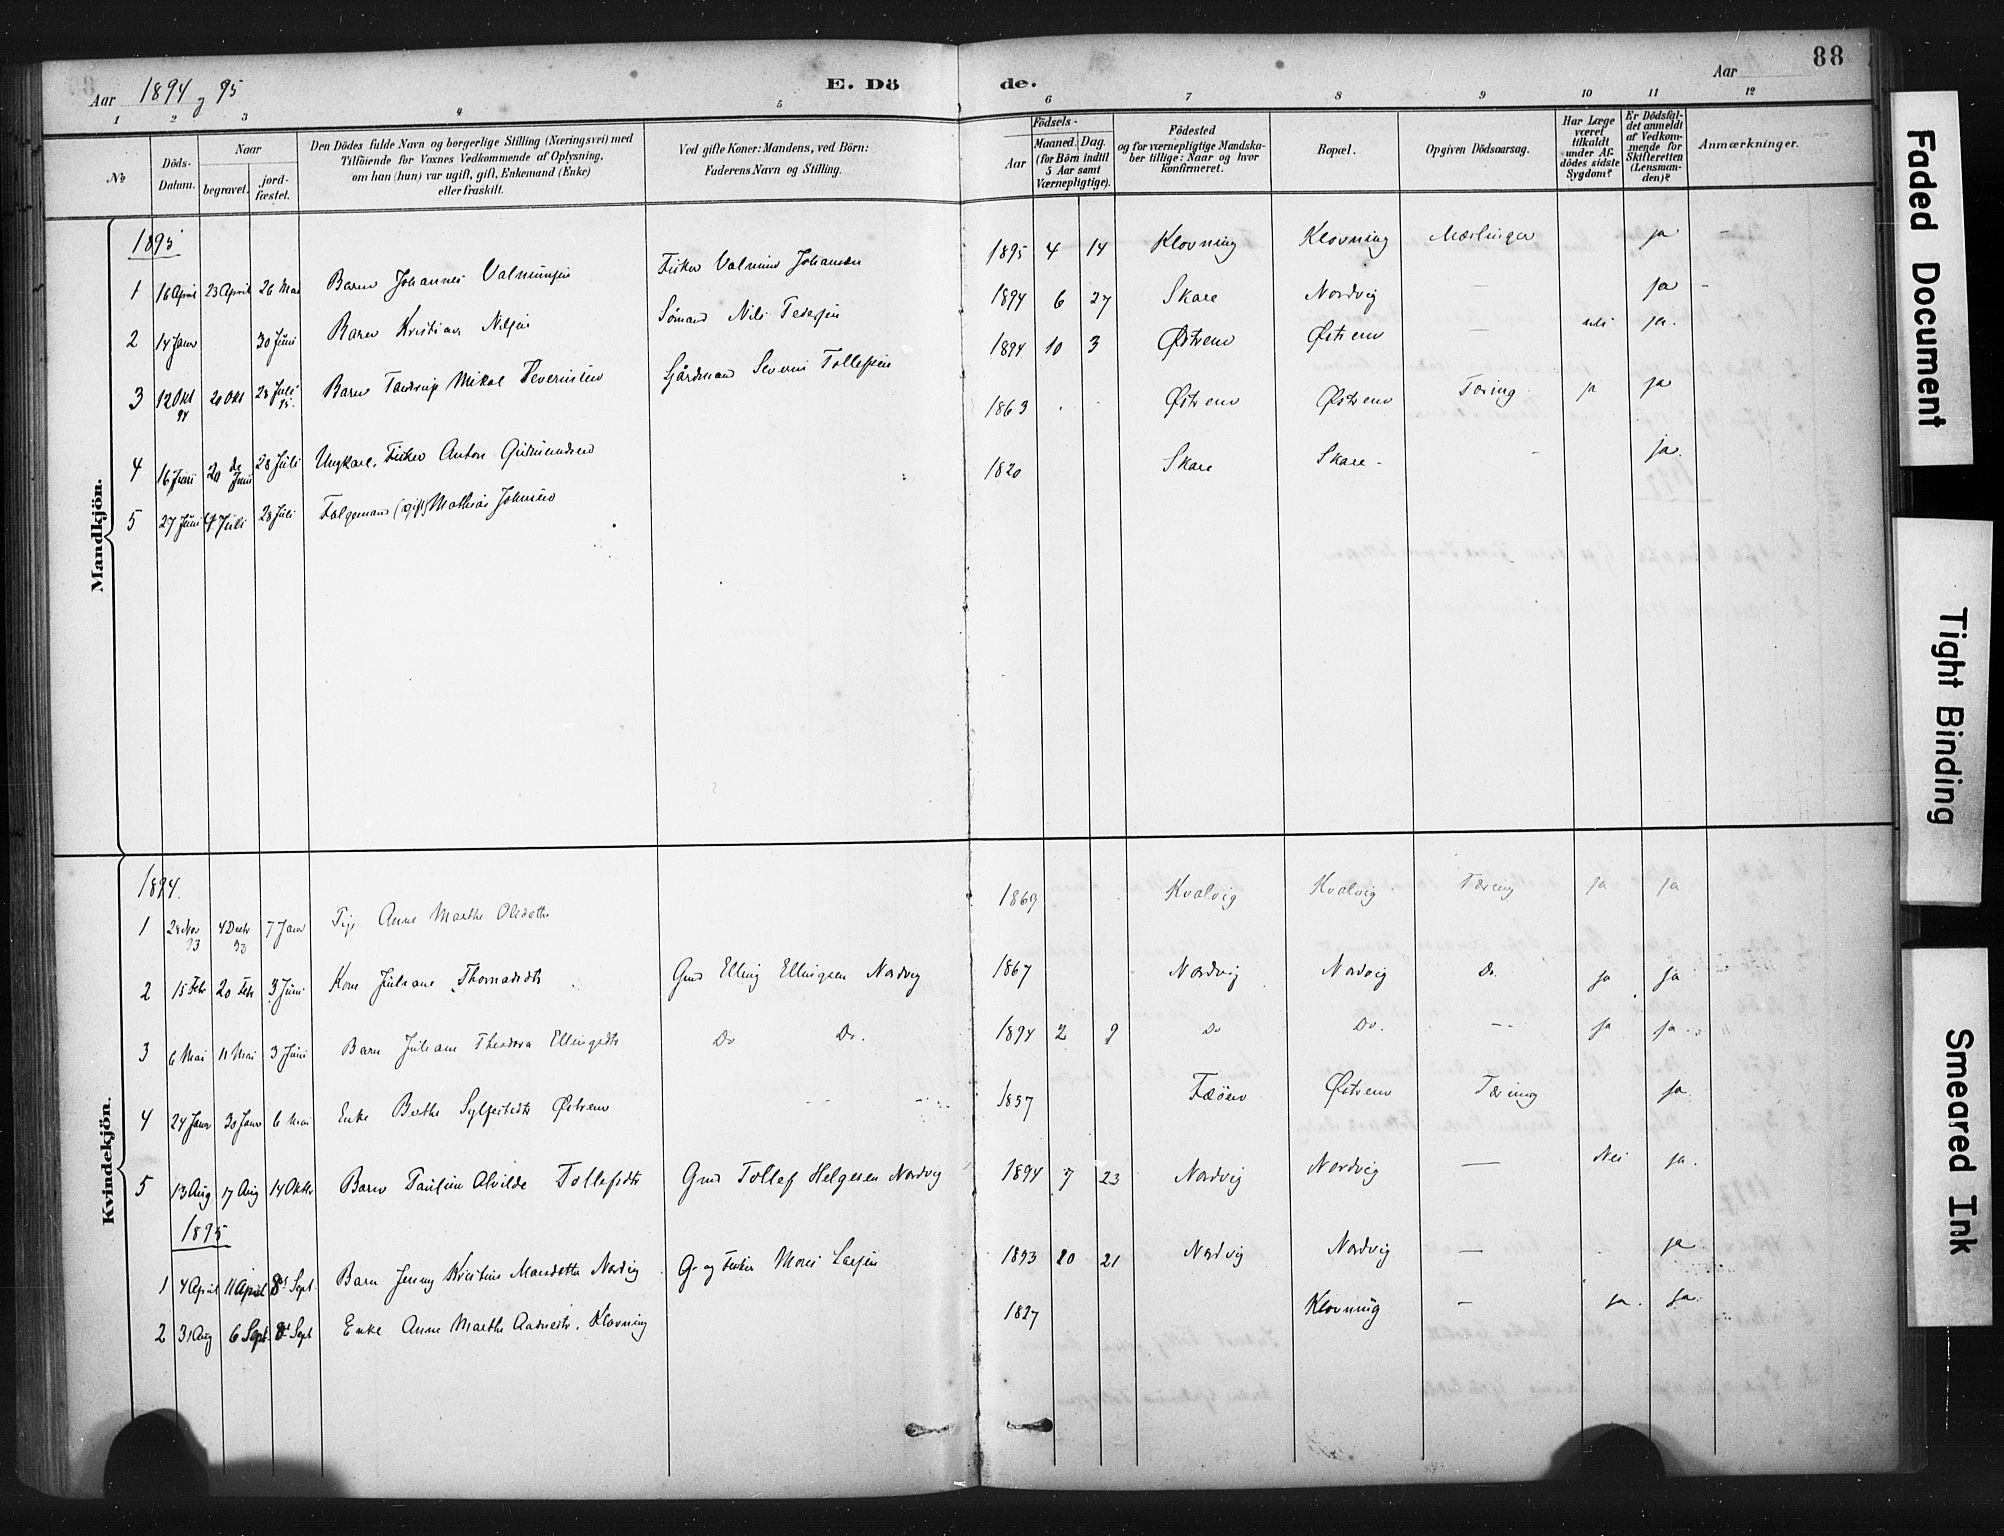 88
Aar 1894 og 95 E. Dö de. Aar
1 2 3 4 5 6 7 8 9 10 11 12
No
Döds-Datum.
Naar
begravet.
jord-fæstet.
Den Dödes fulde Navn og borgerlige Stilling (Næringsvei) med
Tilföiende for Voxnes Vedkommende af Oplysning,
om han (hun) var ugift, gift, Enkemand (Enke)
eller fraskilt.
Ved gifte Koner: Mandens, ved Börn:
Faderens Navn og Stilling.
Födsels-
Aar
Maaned. Dag.
(for Börn indtil
5 Aar samt
Værnepligtige).
Födested
og for værnepligtige Mandska-
ber tillige: Naar og hvor
konfirmeret.
Bopæl.
Opgiven Dödsaarsag.
Har Læge
været
tilkaldt
under Af-
dödes sidste
Sygdom?
Er Dödsfal-
det anmeldt
af Vedkom-
mende for
Skifteretten
(Lensman-
den)?
Anmærkninger.
Mandkjön.
1895
1 16 April 23 April 26 Mai Barn Johannes Valminsen Fisker Valmin Johansen 1895 4 14 Klovning Klovning Mæslinger ja -
2 14 Janr 30 Juni Barn Kristian Nilsen Sømand Nils Pedersen 1894 6 27 Skare Nordvig - ja -
3 12 Okt 94 20 Okt 28 Juli 95. Barn Mikal Severinsen Gårdmand Severin Tollefsen 1894 10 3 Østrem Østrem - nei ja.
4 16 Juni 20 de Juni 28 Juli Ungkarl, Fisker Anton Gudmundsen 1863 Østrem Østrem Tæring ja ja
5 27 Juni 4 Juli 28 Juli Folgemand (gift) Mathias Johnsen 1820 Skare Skare - - ja.
Kvindekjön.
1894.
1 28 Nov 93 4 Decbr 93 7 Janr Pige Anne Marthe Olsdotter 1869 Kvalvig Kvalvig Tæring ja ja
2 15 Febr 20 Febr 3 Juni Kone Juliane Thomasdtr Gmd Elling Ellingsen Nordvig 1867 Nordvig Nordvig Do. ja ja
3 6 Mai 11 Mai 3 Juni Barn Juliane Theodora Ellingsdtr Do Do. 1894 2 9 Do Do. -- ja ja.
4 24 Janr 30 Janr 6 Mai Enke Berthe Sylfestsdtr Østrem - - - 1857 Fæöen Østrem Tæring ja.
5 13 Aug 17 Aug 14 Oktbr Barn Pauline Alvilde Tollefsdtr Gmd Tollef Helgesen Nordvig 1894 7 23 Nordvig Nordvig - Nei ja.
1895
1 4 April 11 April 8de Sept. Barn Jenny Kristine Monsdotter Nordvig G. og Fisker Mons Larsen 1893 10 21 Nordvig Nordvig - ja
2 31 Aug 6 Sept. 8de Sept Enke Anne Marthe Aadnesdtr. Klovning 1827 Klovning - ja. ja.
Faded Document
Tight Binding
Smeared Ink